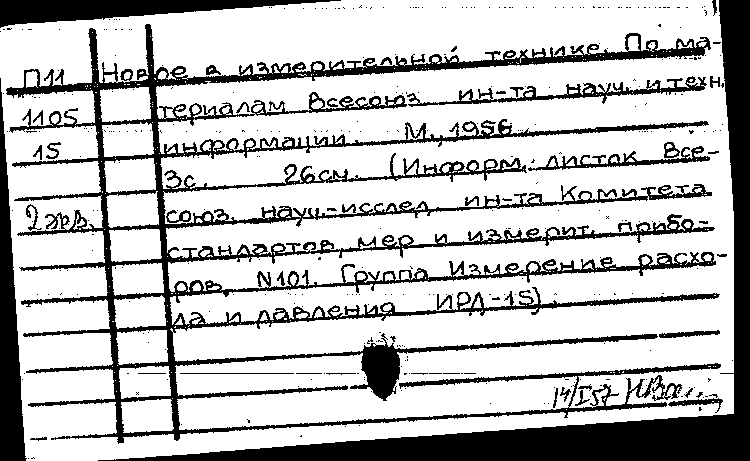 П11 Новое в измерительной технике. По ма-
1105 териалам Всесоюз. ин-та науч. и техн.
15 информации. М., 1956.
3с. 26см. (Информ. листок Все-
2 экз. союз. науч.-исслед. ин-та Комитета
стандартов, мер и измерит. прибо-
ров, N101. Группа Измерение расхо-
да и давления ИРД-15).
14/I 57